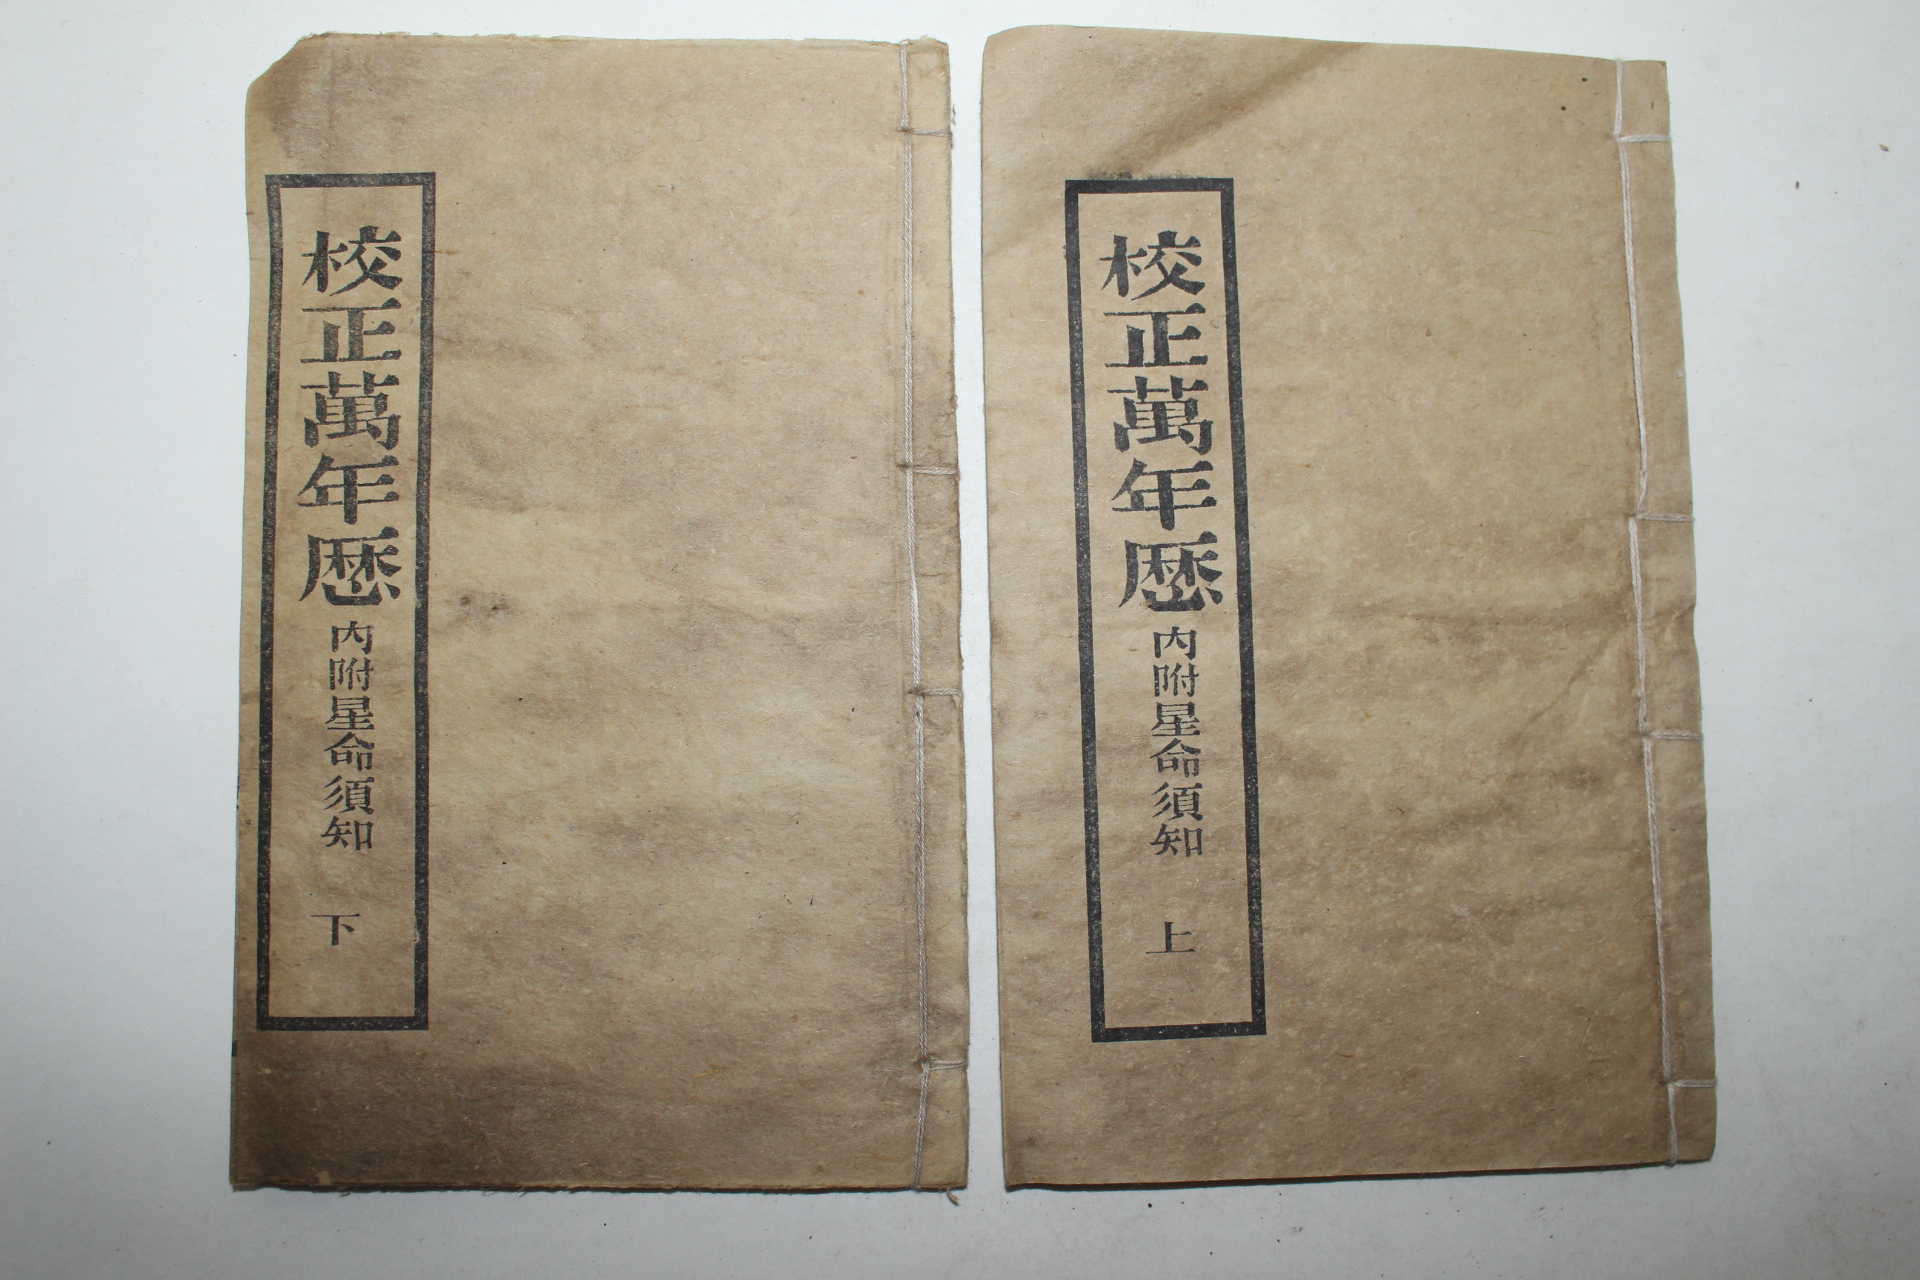 校正萬年厯 內附星命須知 上
校正萬年厯 內附星命須知 下